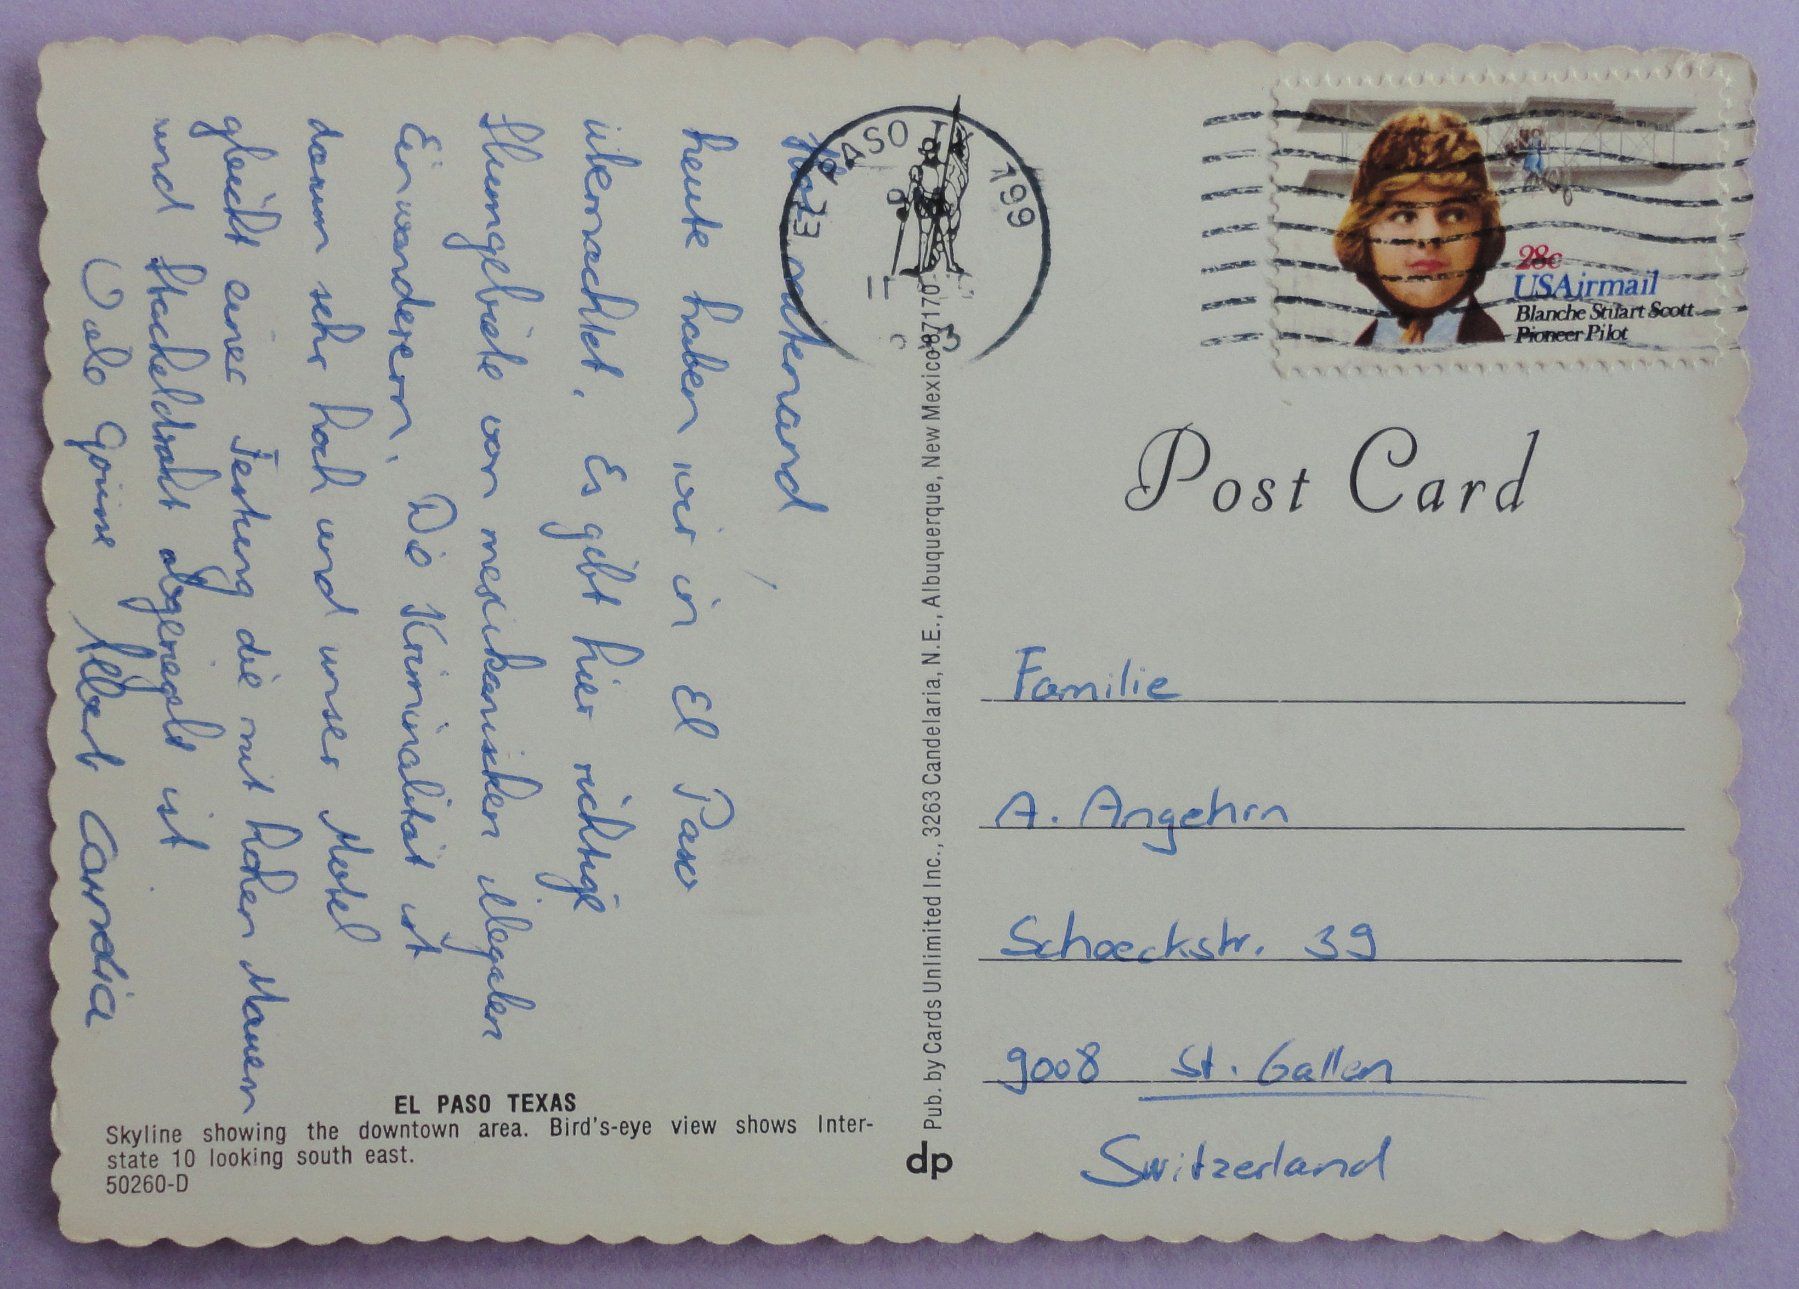 Hoi mitenand
heute haben wir in El Paso
übernachtet. Es gibt hier richtige
Slumgebiete von mexikanischen illegalen
Einwanderern. Die Kriminalität ist
darum sehr hoch und unser Motel
gleicht einer Festung die mit hohen Mauern
und Stacheldraht abgeriegelt ist
Viele Grüsse Albert
EL PASO TEXAS
Skyline showing the downtown area. Bird's-eye view shows Inter-
state 10 looking south east.
50260-D
Pub. by Cards Unlimited Inc., 3263 Candelaria, N.E., Albuquerque, New Mexico 87170
dp
EL PASO TX 799
28c
USAirmail
Blanche Stuart Scott
Pioneer Pilot
Post Card
Familie
A. Angehrn
Schoeckstr. 39
9008 St. Gallen
Switzerland